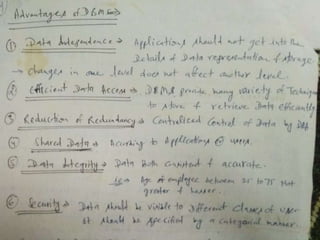 Advantages of DBMS
① Data Independence → Applications should not get into the
Details of Data representation & storage
→ changes in one level does not affect another level.
② Efficient Data Access → DBMS provide many variety of Techniques
to store & retrieve Data efficiently
③ Reduction of Redundancy → Centralised Control of Data by DBA
④ Shared Data → According to Applications & users.
⑤ Data Integrity → Data Both consistent & accurate.
Age of employee between 25 to 75 Not
greater & lesser.
⑥ Security → Data should be visible to different classes of user
It should be specified by a categorical manner.